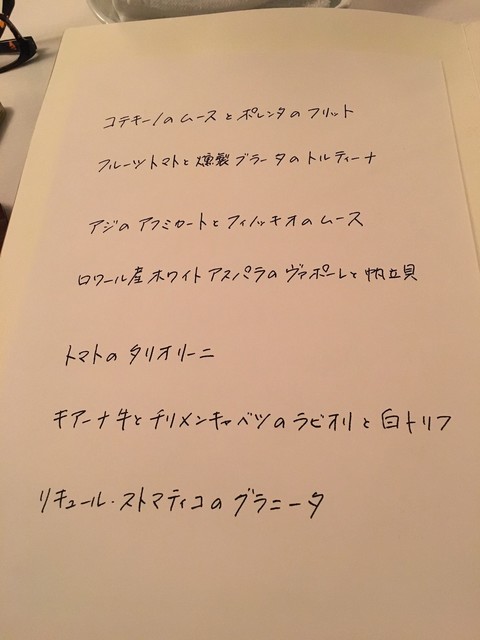 コテキーノのムースとポレンタのフリット
フルーツトマトと燻製ブラータのトルティーナ
アジのアフミカートとフィノッキオのムース
ロワール産ホワイトアスパラのヴァポーレと帆立貝
トマトのタリオリーニ
キアーナ牛とチリメンキャベツのラビオリと白トリフ
リキュール・ストマティコのグラニータ